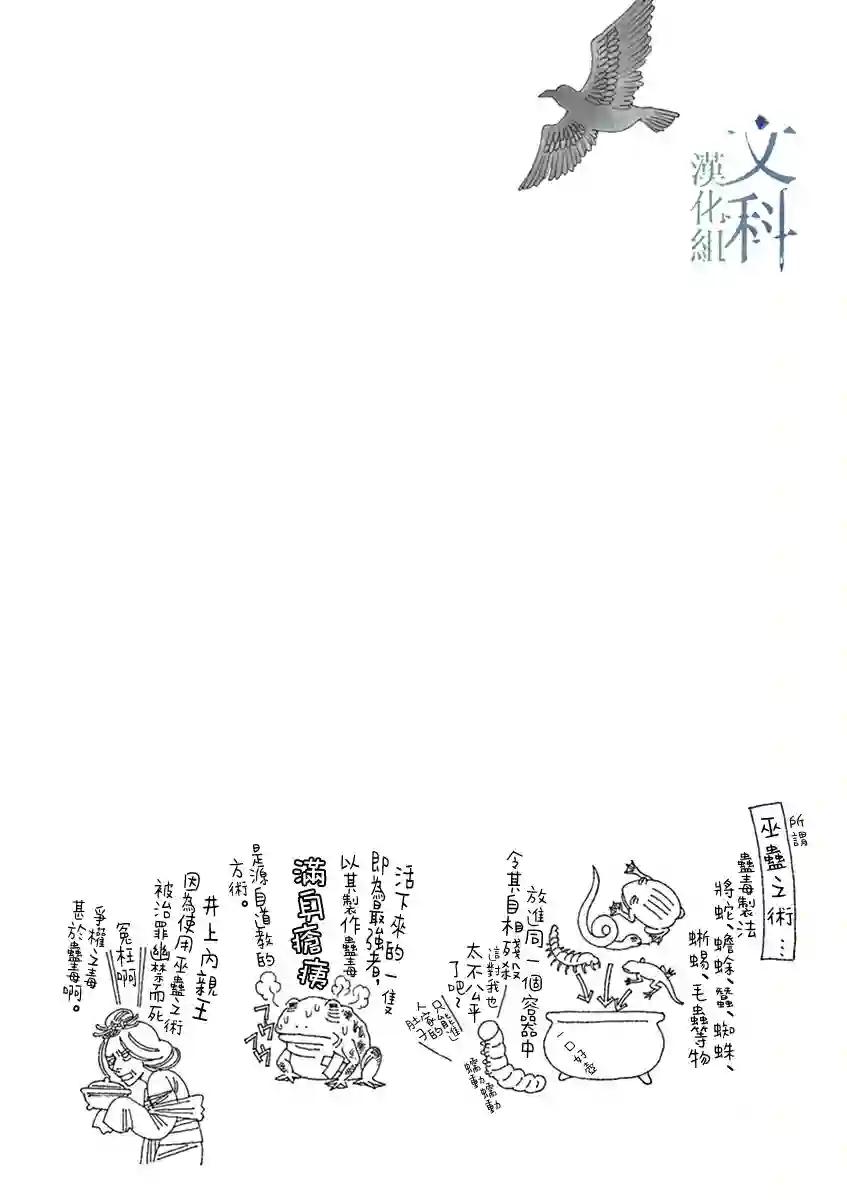 文科
漢化組
所謂
巫蠱之術…
蠱毒製法
將蛇、蟾蜍、蠶、蜘蛛、
蜥蜴、毛蟲等物
放進同一個容器中
令其自相殘殺
一口好壺
這對我也
太不公平
了吧~
人家只能進
肚子
蠕動蠕動
活下來的一隻
即為最強者，
以其製作蠱毒
滿身瘡痍
是源自道教的
方術。
井上內親王
因為使用巫蠱之術
被治罪幽禁而死
冤枉啊
爭權之毒
甚於蠱毒啊。